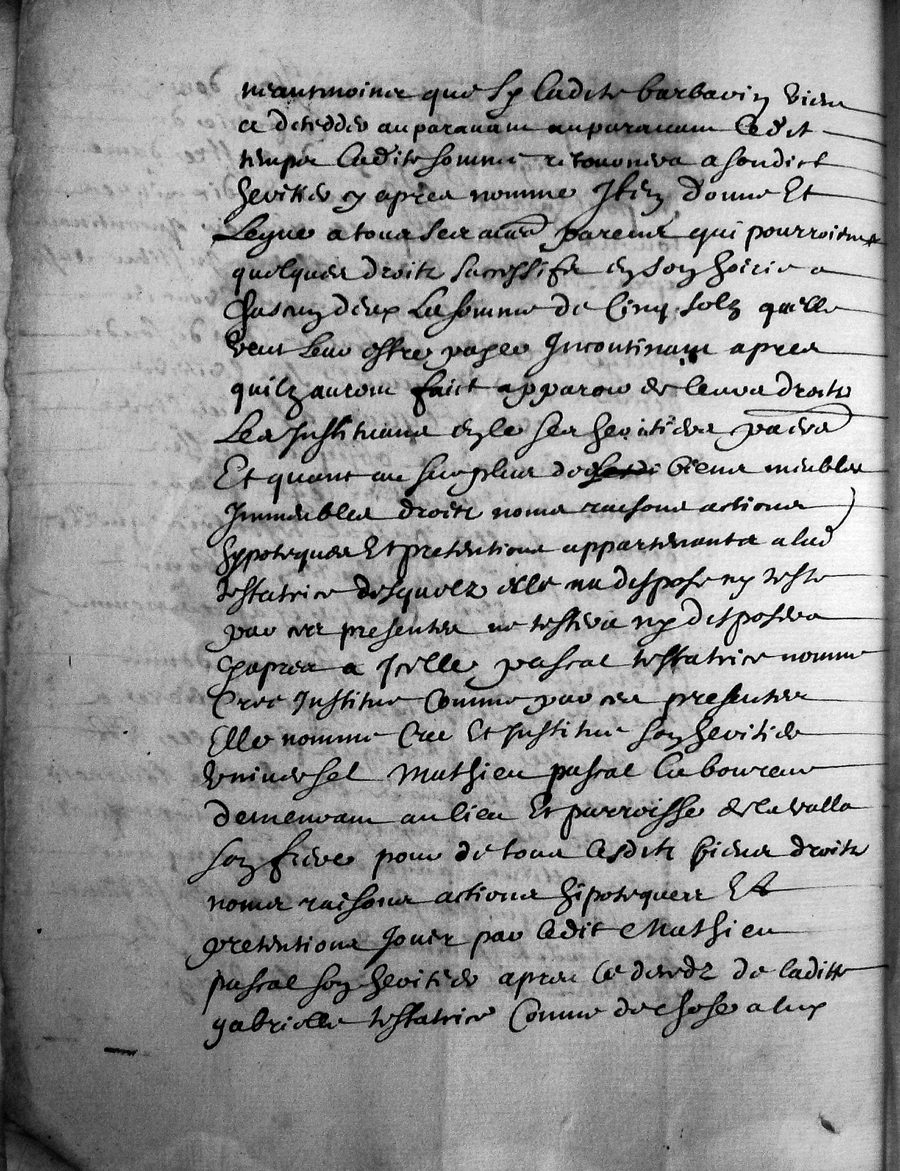 neantmoings que sy ladite barbarin vien
a decedder auparavant auparavant ledit
temps ladite somme retournera a sondict
heritier cy apres nomme Item donne Et
Legue a tous ses autres parens qui pourroient
quelques droitz sucessifz en son hoirie a
Chascun deux La somme de Cinq solz quelle
veut leur estre payee Incontinant apres
quilz auront faict apparoir de leurs droitz
Les Instituant en ce ses heritiers par[ticulie]rs
Et quant au surplus de biens meubles
Immeubles droitz noms raisons actions
hypoteques Et pretentions appartenants a lad
testatrice desquelz elle na dispose ny teste
par ces presentes ne testera ny disposera
Cyapres a Icelle pascal testatrice nomme
Cree Institue Comme par ces presentes
Elle nomme Cree Et Institue son heritier
vniversel Mathieu pascal laboureur
demeurant au lieu Et parroisse de la valla
son frere pour de tous lesditz biens droitz
noms raisons actions hipoteques Et
pretentions Jouir par ledit Mathieu
pascal son heritier apres le decedz de laditte
gabrielle testatrice Comme de chose a luy